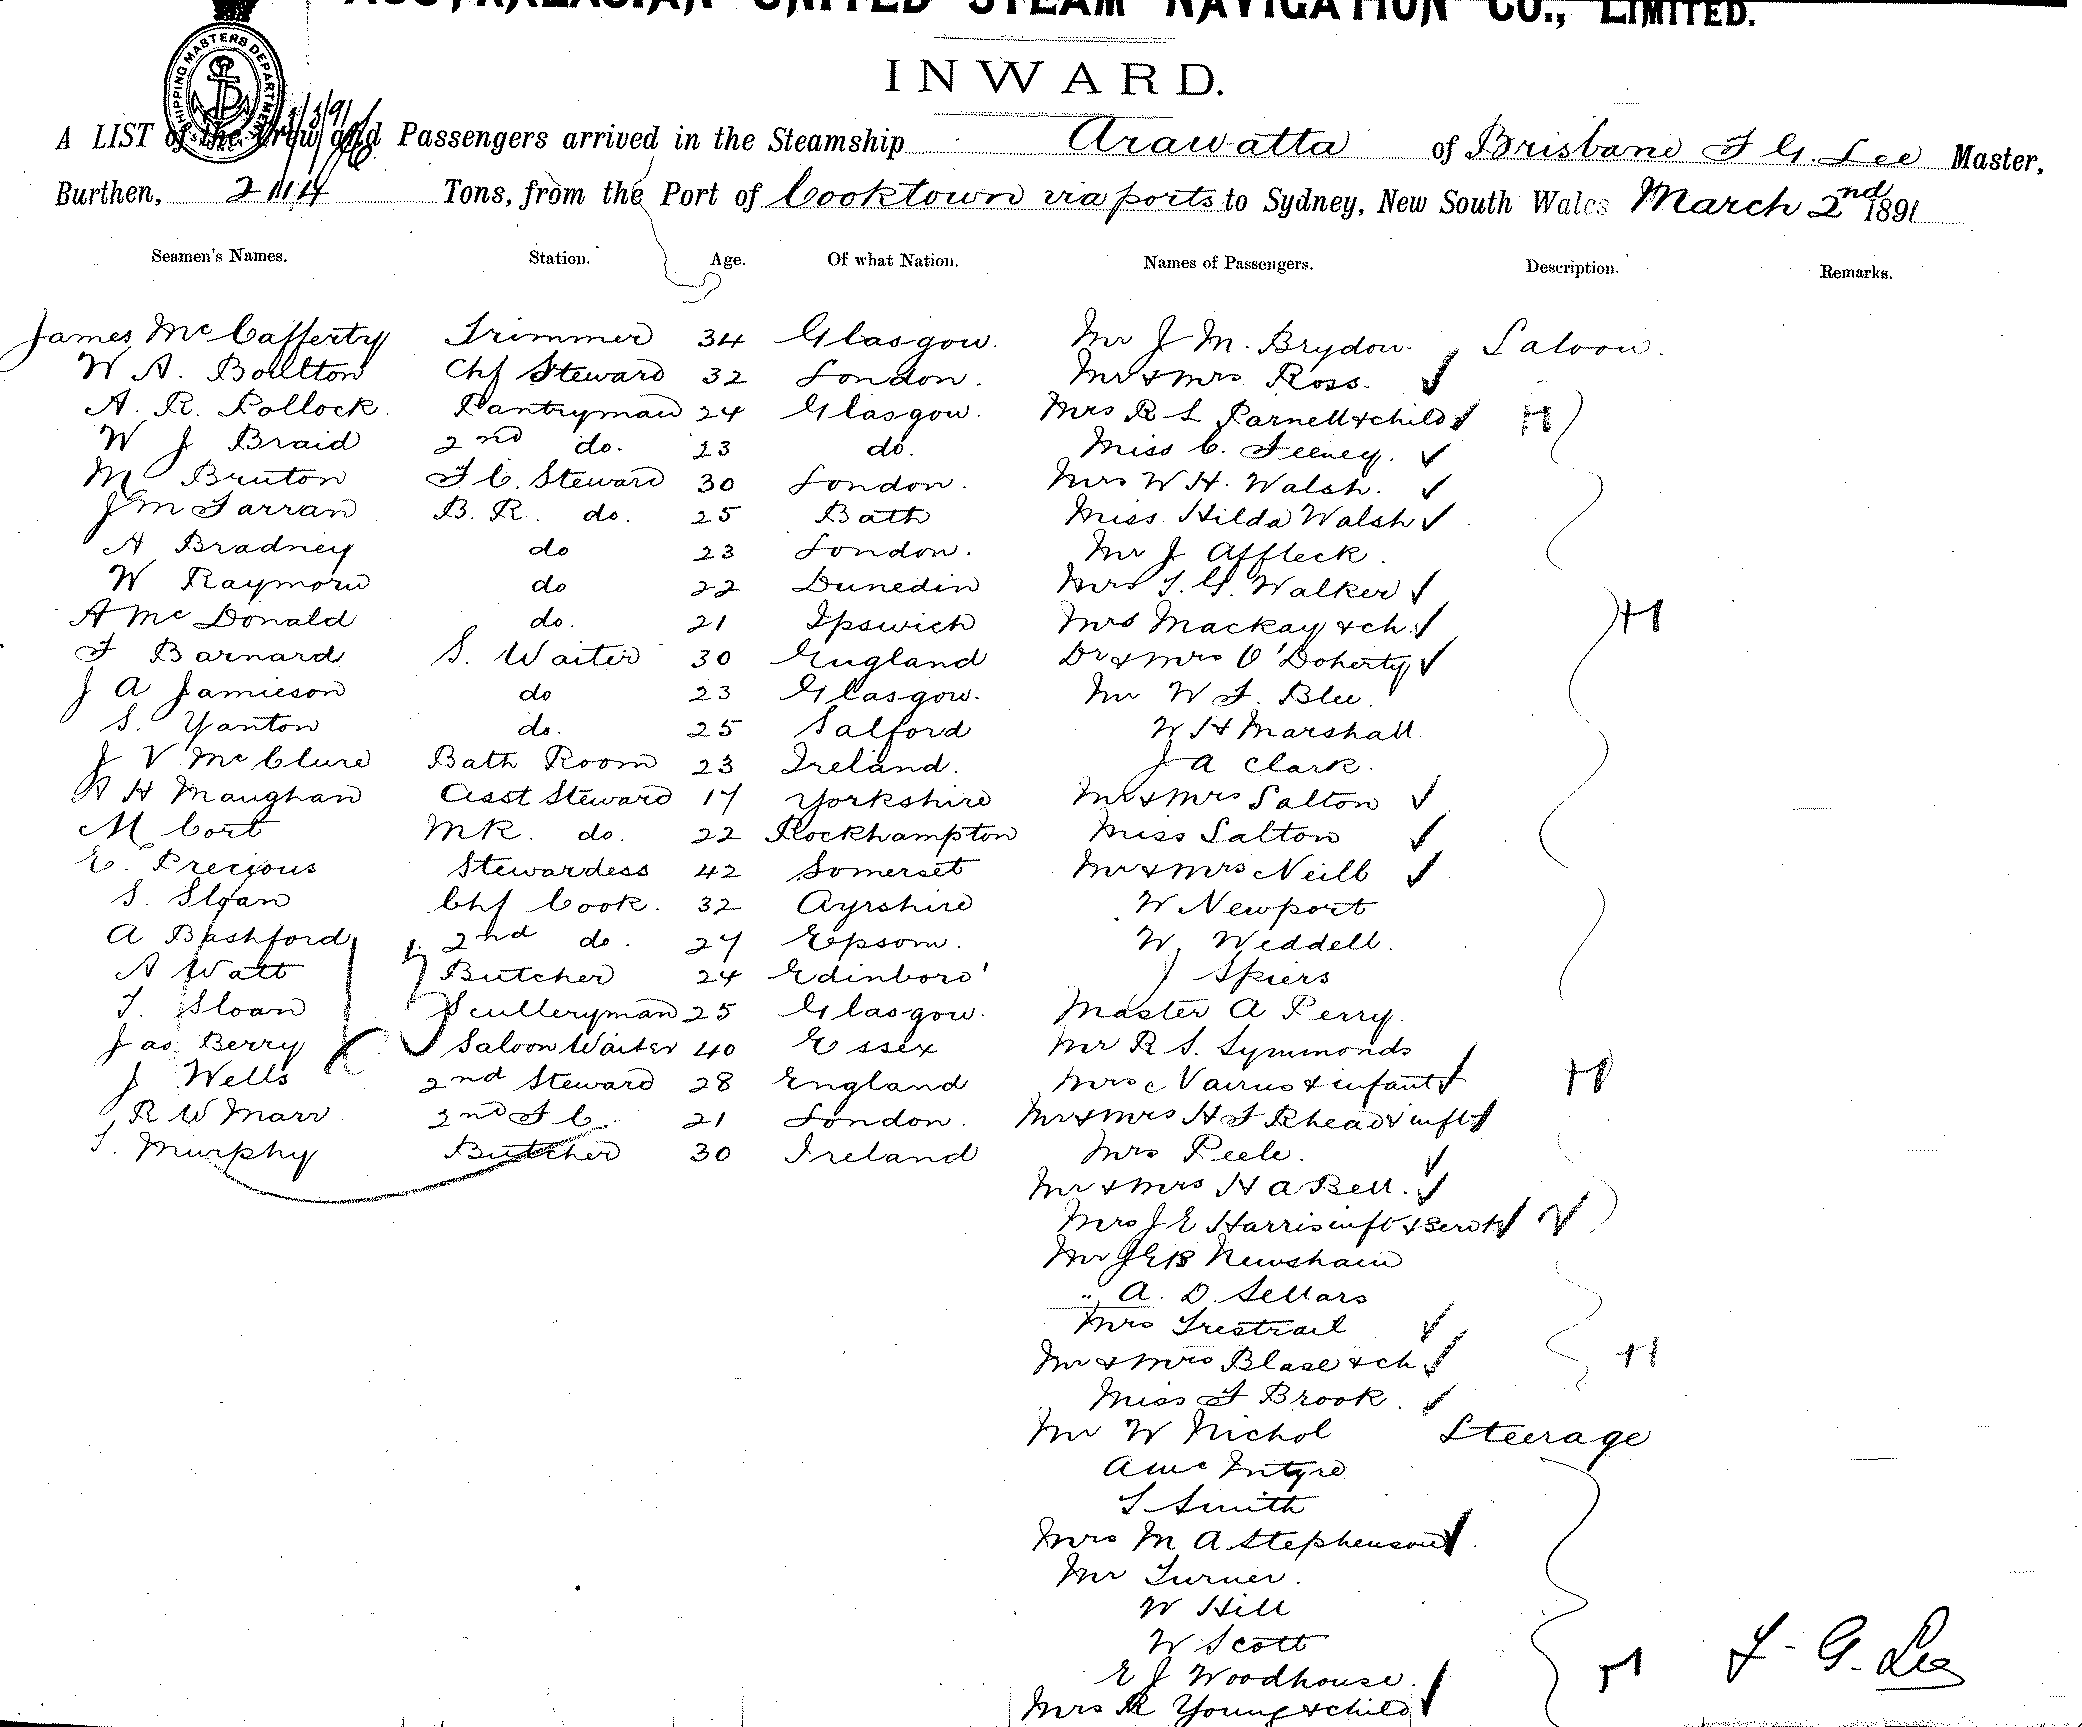 AUSTRALASIAN UNITED STEAM NAVIGATION CO., LIMITED.
INWARD.
SHIPPING MASTERS DEPARTMENT
A LIST of the Crew and Passengers arrived in the Steamship Arawatta of Brisbane F G. Lee Master,
Burthen, 2114 Tons, from the Port of Cooktown via ports to Sydney, New South Wales March 2nd 1891
Seamen's Names. Station. Age. Of what Nation. Names of Passengers. Description. Remarks.
James McCafferty Trimmer 34 Glasgow. Mr J M. Brydon. Saloon.
W A. Boulton Chf Steward 32 London. Mr & Mrs Ross.
A. R. Pollock. Pantryman 24 Glasgow. Mrs R S Parnell & child H
W J Braid 2nd do. 23 do. Miss C. Feeney.
M Bruton F C. Steward 30 London. Mrs W H. Walsh.
J M Farran B. R. do. 25 Bath Miss Hilda Walsh
A Bradney do 23 London. Mr J Affleck.
W Raymond do 22 Dunedin Mrs T. G. Walker
A McDonald do. 21 Ipswich Mrs Mackay & ch. H
F Barnard S. Waiter 30 England Dr & Mrs O'Doherty
J A Jamieson do 23 Glasgow. Mr W F. Blee.
S. Yanton do. 25 Salford W H Marshall
J V McClure Bath Room 23 Ireland. J A Clark.
H Maughan Asst Steward 17 Yorkshire Mr & Mrs Salton
M Cort MR. do. 22 Rockhampton Miss Salton
E. Precious Stewardess 42 Somerset Mr & Mrs Neill
S. Sloan Chf Cook. 32 Ayrshire W Newport
A Bashford 2nd do. 27 Epsom. W. Weddell.
A Watt Butcher 24 Edinboro' J Spiers
T. Sloan Sculleryman 25 Glasgow. Master A Perry.
Jas Berry Saloon Waiter 40 Essex Mr R S. Symmonds
J Wells 2nd Steward 28 England Mrs & infant H
R W Marr 2nd F C. 21 London. Mr & Mrs H F Rhead & inft
T. Murphy Butcher 30 Ireland Mrs Peele.
Mr & Mrs H A Bell.
Mrs J E Harris inft & servt
Mr J E B Newsham
" A. D. Sellars
Mrs Trestrail
Mr & Mrs Blase & ch H
Miss F Brook.
Mr W Nichol Steerage
A McIntyre
S Smith
Mrs M A Stephenson
Mr Turner.
W Hill
W Scott
E J Woodhouse. F. G. Lee
Mrs R Young & child